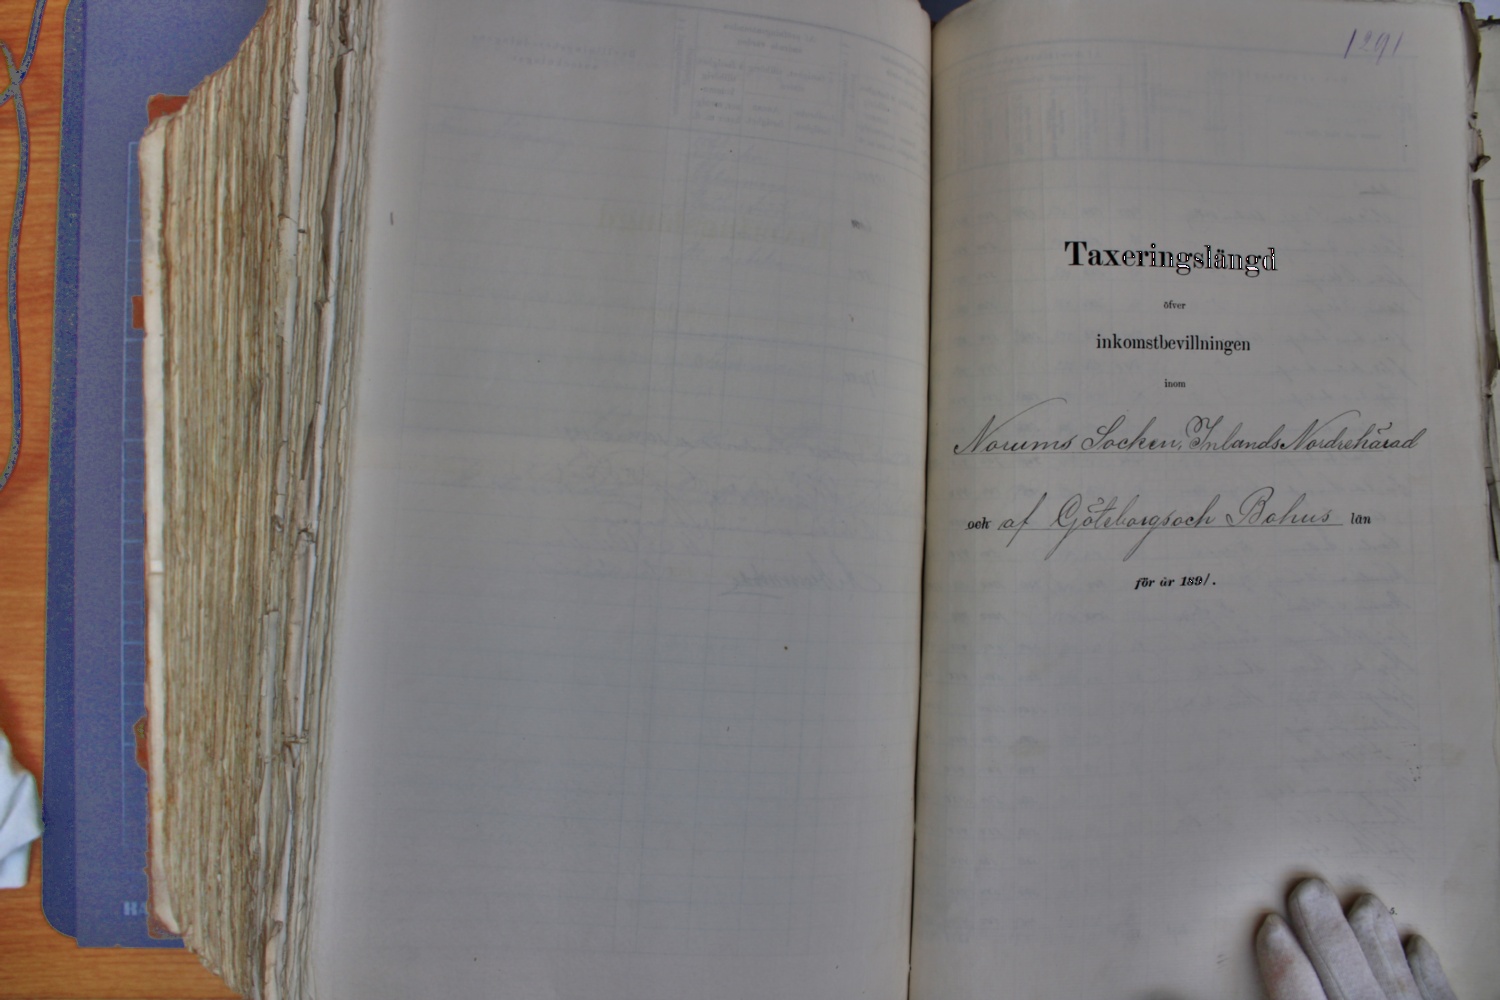 1291
Taxeringslängd
öfver
inkomstbevillningen
inom
Norums Socken, Inlands Nordrehärad
och af Göteborgs och Bohus län
för år 1891.